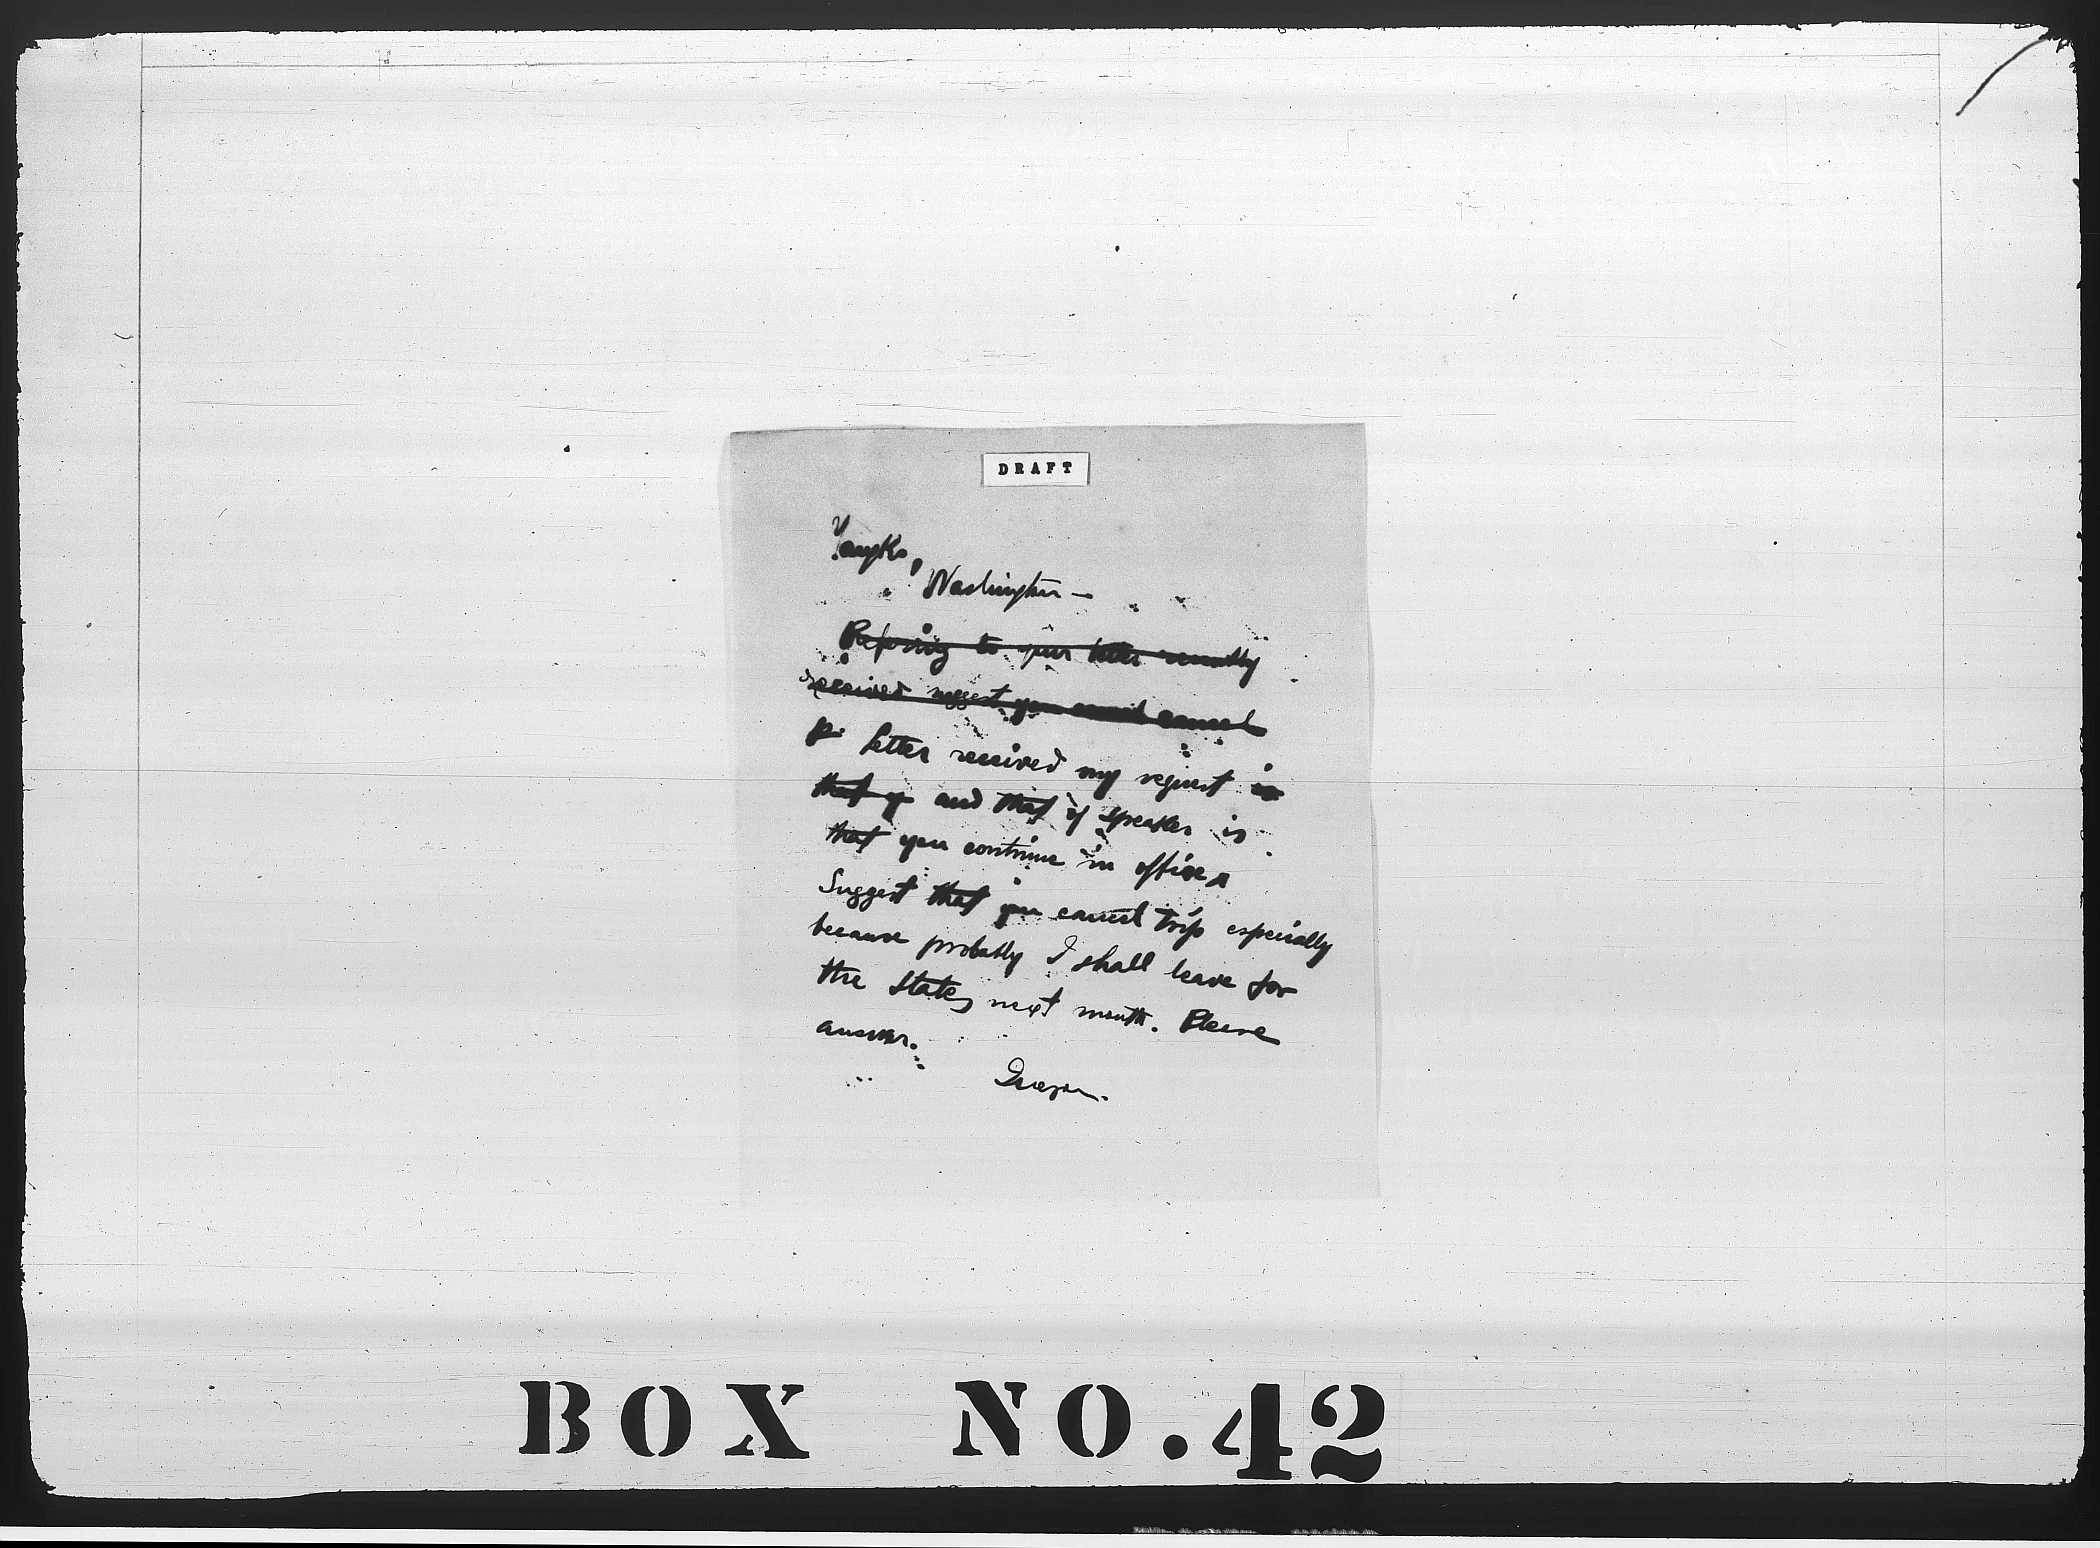 DRAFT
Yangko,
Washington —
Refering to your letter recently
received suggest you cancel
letter received my request is
that and that of speaker is
that you continue in office
Suggest that you cancel trip especially
because probably I shall leave for
the States next month. Please
answer.
Quezon.
BOX NO. 42